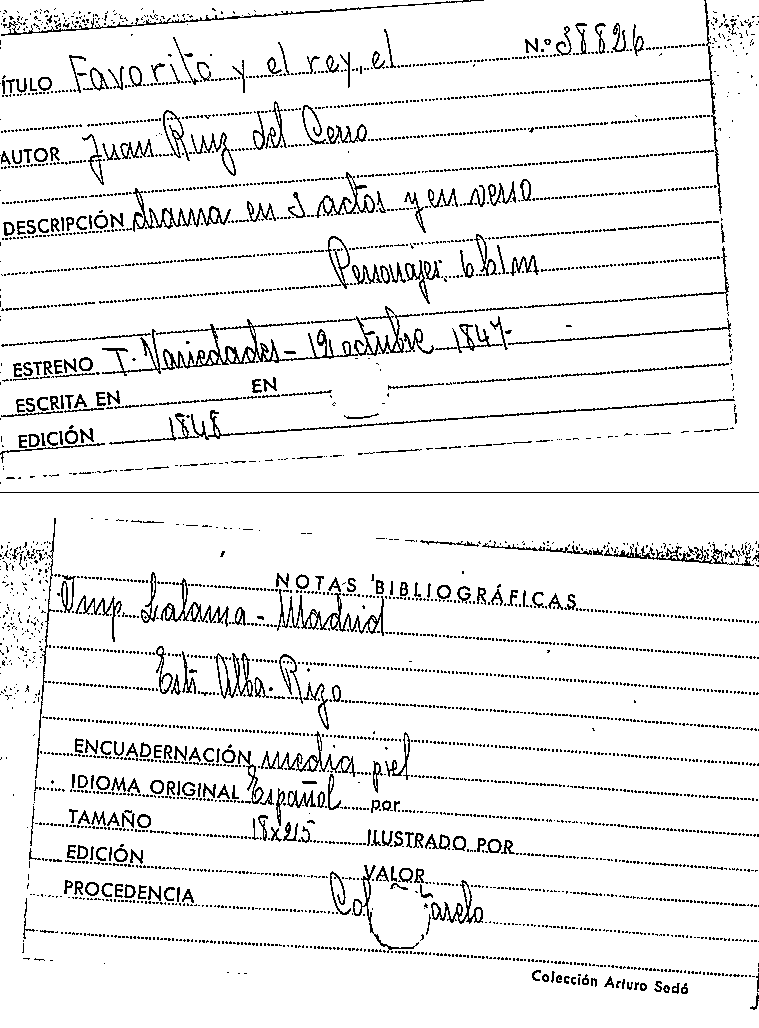 TÍTULO Favorito y el rey, el N.º 38826
AUTOR Juan Ruiz del Cerro
DESCRIPCIÓN drama en 3 actos y en verso
Personajes: 6 h 1 m
ESTRENO T. Variedades - 19 octubre 1847-
ESCRITA EN EN
EDICIÓN 1848
NOTAS BIBLIOGRÁFICAS
Imp Lalama - Madrid
Alba - Rizo
ENCUADERNACIÓN media piel
IDIOMA ORIGINAL Español por
TAMAÑO ILUSTRADO POR
EDICIÓN VALOR
PROCEDENCIA
Colección Arturo Sedó